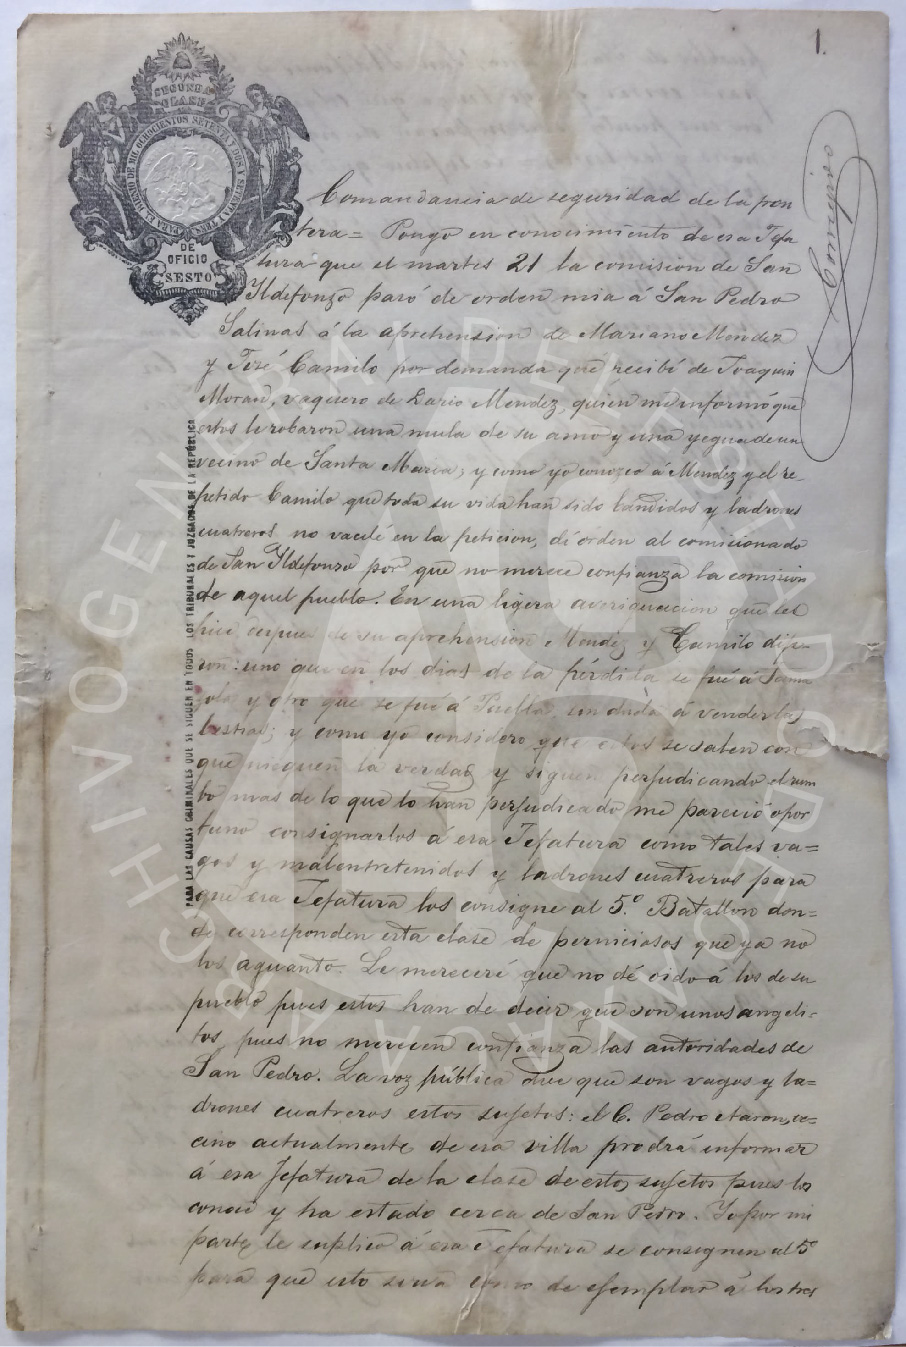 1.
SEGUNDA
CLASE
PARA EL BIENIO DE MIL OCHOCIENTOS SETENTA Y DOS Y SETENTA Y TRES
DE
OFICIO
SESTO
Comandancia de seguridad de la fron
tera= Pongo en conocimiento de esa Gefa
tura que el martes 21 la comision de San
Yldefonzo pasó de orden mia á San Pedro
Salinas á la aprehension de Mariano Mendez
y José Camilo por demanda que recibí de Joaquin
Moran, vaquero de Dario Mendez, quien me informó que
estos le robaron una mula de su amo y una yegua de un
vecino de Santa Maria; y como yo conozco á Mendez y el re-
petido Camilo que toda su vida han sido bandidos y ladrones
cuatreros no vacilé en la peticion, dí orden al comicionado
de San Yldefonzo por que no merece confianza la comision
de aquel pueblo. En una ligera averiguacion que les
hice despues de su aprehension Mendez y Camilo dije-
ron: uno que en los dias de la pérdida se fué á Tama
zola y otro que se fué á Puebla, sin duda á vender las
bestias; y como yo considero que estos se salen con
que nieguen la verdad y siguen perjudicando el rum
bo mas de lo que lo han perjudicado me pareció opor
tuno consignarlos á esa Gefatura como tales va=
gos y malentretenidos y ladrones cuatreros para
que esa Gefatura los consigne al 5º. Batallon don=
de corresponden esta clase de perniciosos que ya no
los aguanto. Le mereceré que no dé oido á los de su
pueblo pues estos han de decir que son unos angeli-
tos, pues no merecen confianza las autoridades de
San Pedro. La voz pública dice que son vagos y la=
drones cuatreros estos sujetos: el C. Pedro Aaron, ve-
cino actualmente de esa villa prodrá informar
á esa Jefatura de la clase de estos sujetos pues los
conoce y ha estado cerca de San Pedro. Yo por mi
parte le suplico á esa Gefatura se consignen al 5º
para que esto sirva como de ejemplar á los tres
PARA LAS CAUSAS CRIMINALES QUE SE SIGUEN EN TODOS LOS TRIBUNALES Y JUZGADOS DE LA REPÚBLICA
ARCHIVO GENERAL DEL ESTADO DE OAXACA
AGEO